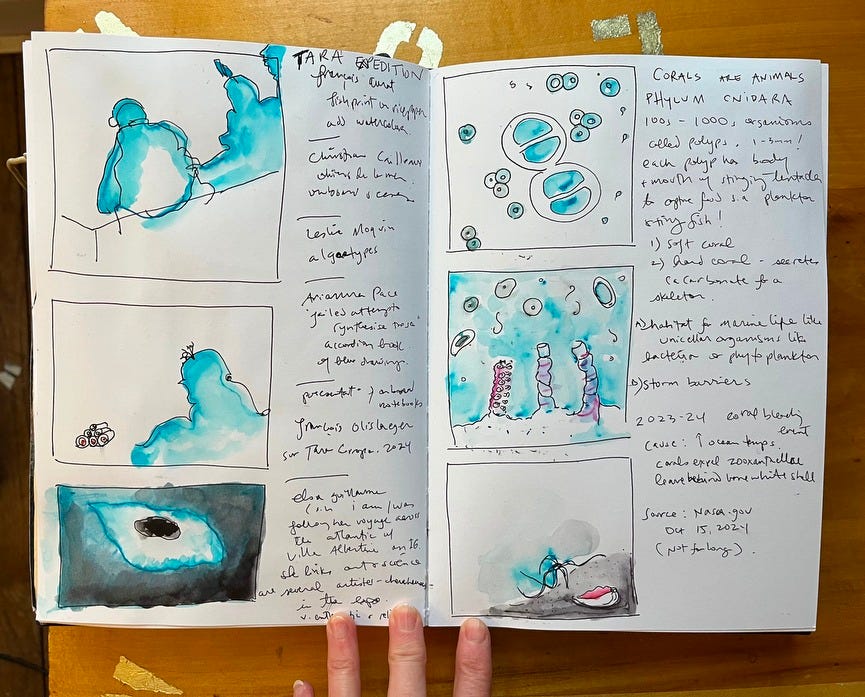 TARA EXPEDITION
françois
fishprint on rice paper
add watercolor
Christian
onboard scenes
Leslie Moquin
algaetypes
Arianna Pace
"failed attempt
synthesise
accordion book
of blue drawings
onboard
notebooks
françois Olislaeger
sur Tara Europa. 2024
elsa guillaume
I am / was
following her voyage across
the atlantic w/
Villa Albertine on IG.
she links art & science
are several artistes - chercheuses
in the expo.
CORALS ARE ANIMALS
PHYLUM CNIDARA
100s - 1000s organisms
called polyps. 1-3mm!
each polyp has body
+ mouth w/ stinging tentacles
to capture food s.a plankton
& tiny fish!
1) soft coral
2) hard coral - secretes
ca carbonate for a
skeleton.
A) habitat for marine life like
unicellar organisms like
bacteria or phytoplankton
B) storm barriers
2023-24 coral bleaching
event
Cause: ↑ ocean temps.
corals expel zooxanthellae
leave behind bone white shell
Source: Nasa.gov
Oct 15, 2024
(Not for long).